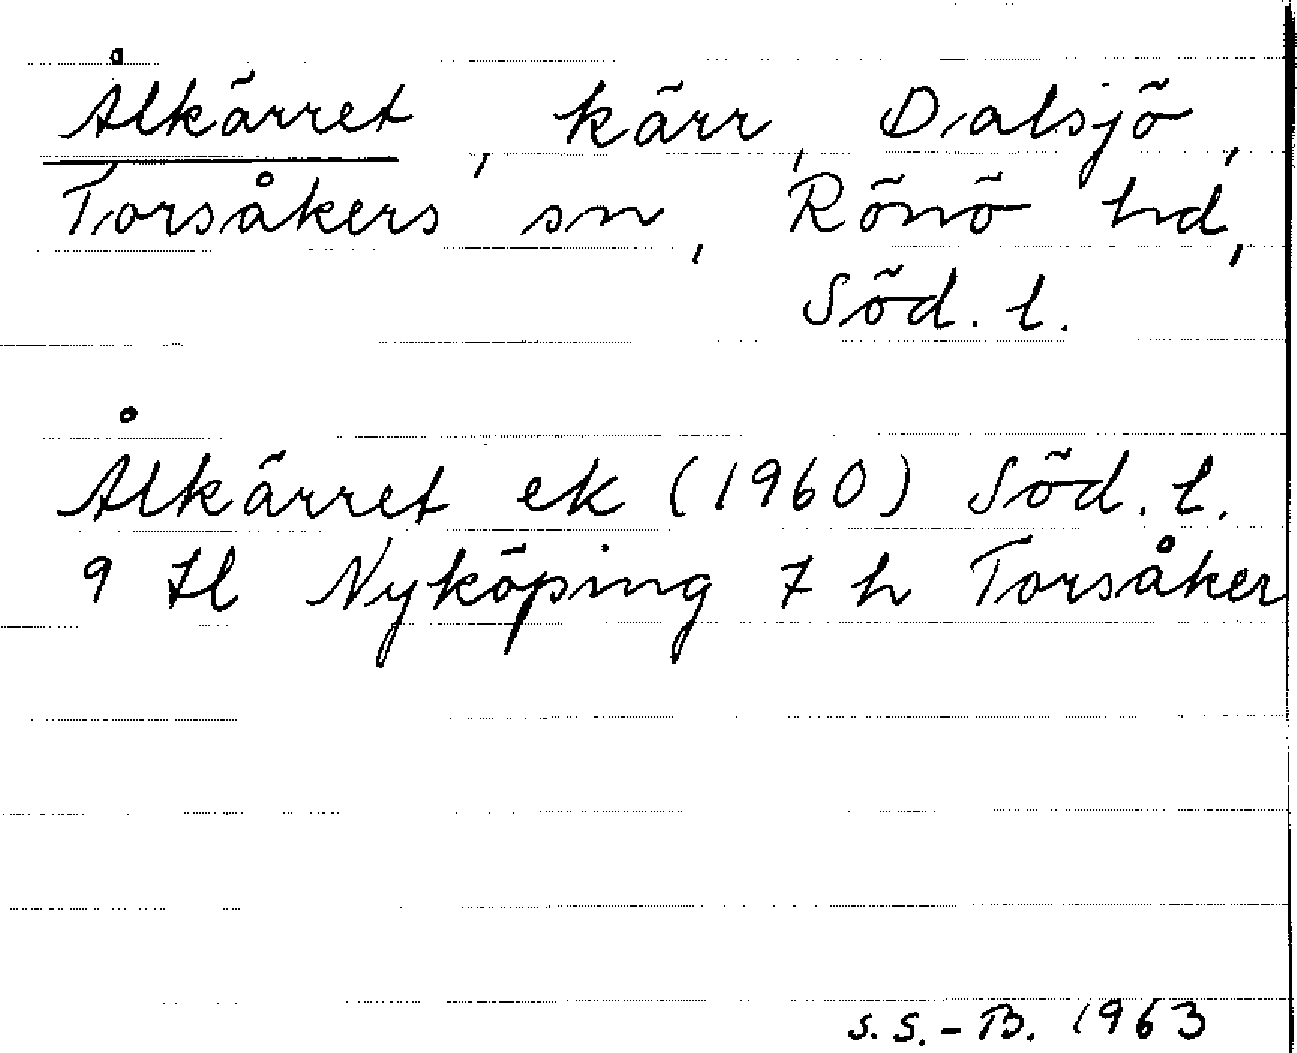 Ålkärret, kärr, Dalsjö,
Torsåkers sn, Rönö hd,
Söd. l.
Ålkärret ek (1960) Söd. l.
9 Il Nyköping 7 h Torsåker
S.S.-B. 1963